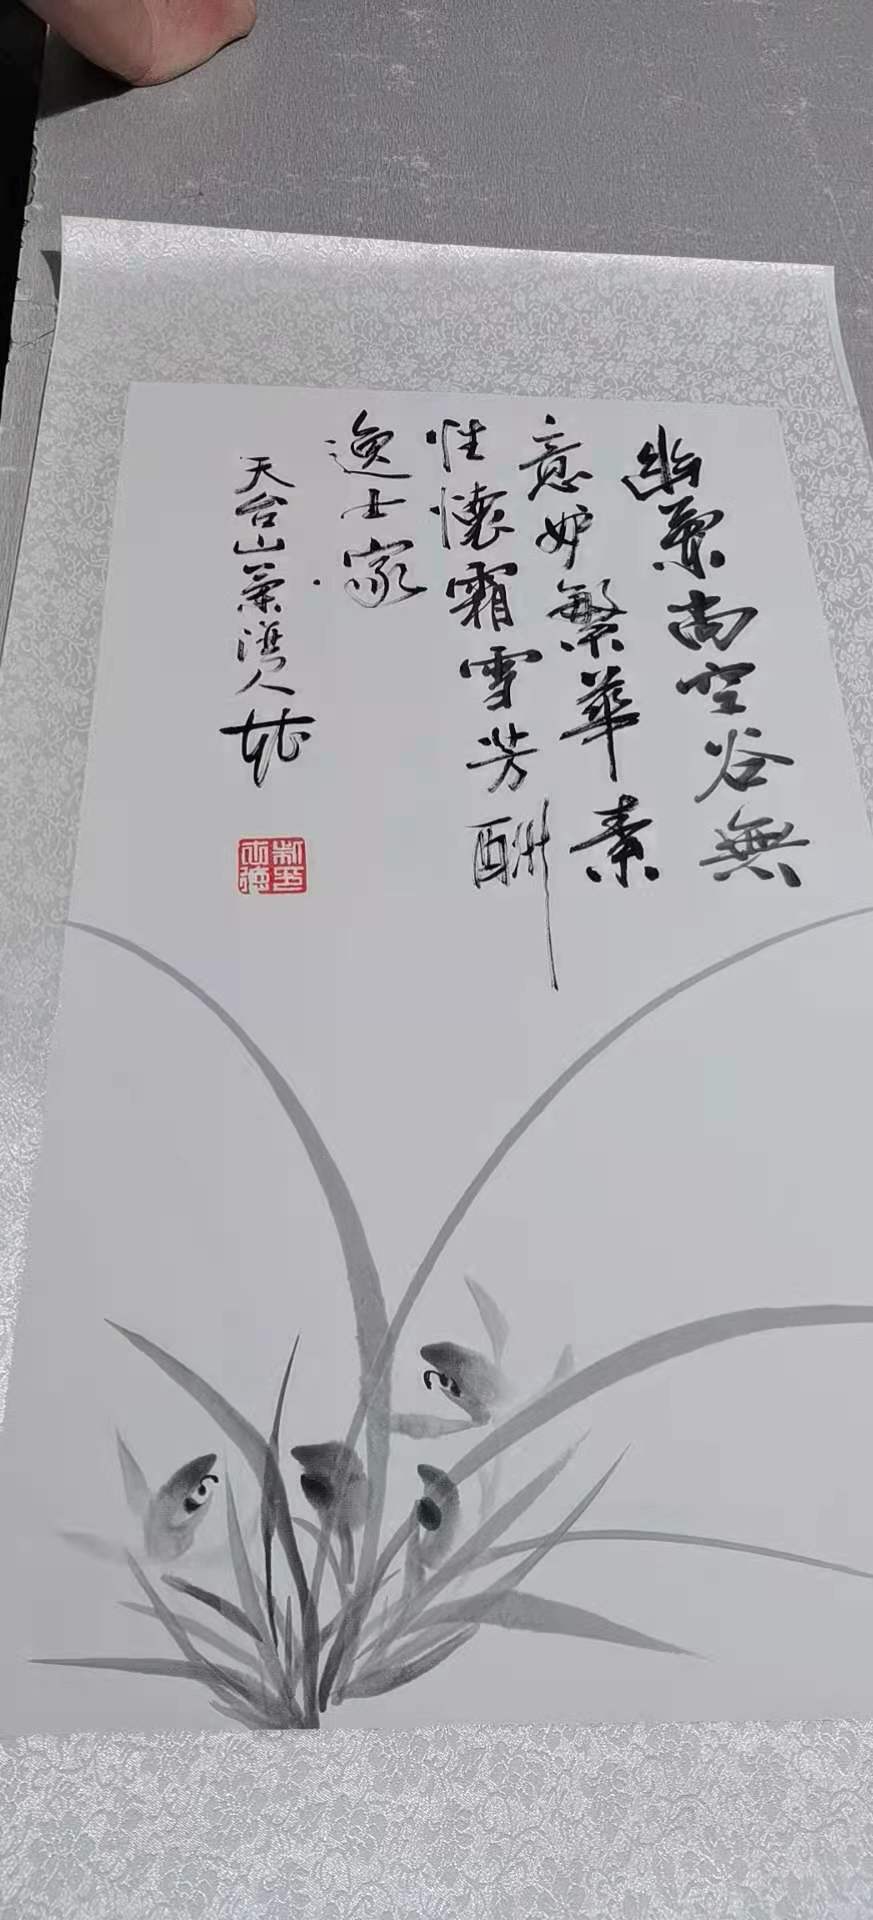 幽蘭尚空谷無
意妒繁華素
性懷霜雪芳酬
逸士家
天台山蘭灣人